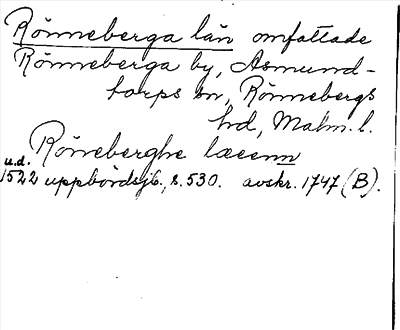 Rönneberga län omfattade
Rönneberga by, Asmund-
torps sn, Rönnebergs
hd, Malm. l.
Rönneberghe læenn
u.d.
1522 uppbördsjb., s. 530. avskr. 1747 (B).